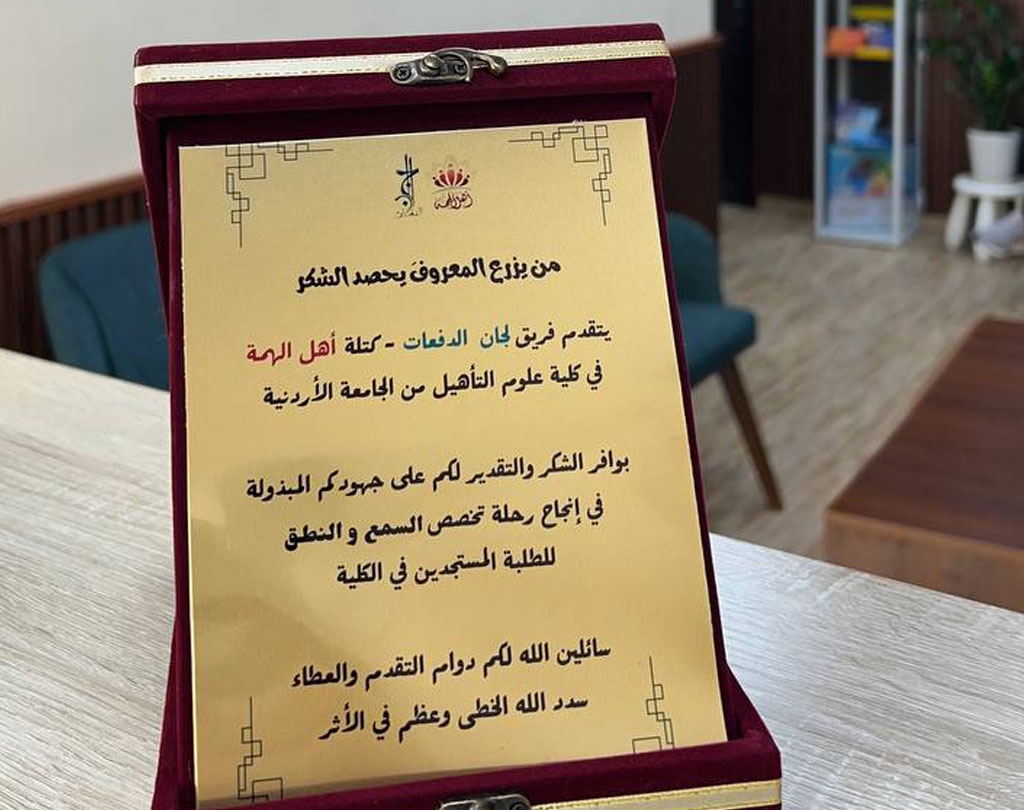 أهل الهمة
من يزرع المعروفَ يحصد الشكر
يتقدم فريق لجان الدفعات - كتلة أهل الهمة
في كلية علوم التأهيل من الجامعة الأردنية
بوافر الشكر والتقدير لكم على جهودكم المبذولة
في إنجاح رحلة تخصص السمع و النطق
للطلبة المستجدين في الكلية
سائلين الله لكم دوام التقدم والعطاء
سدد الله الخطى وعظم في الأثر